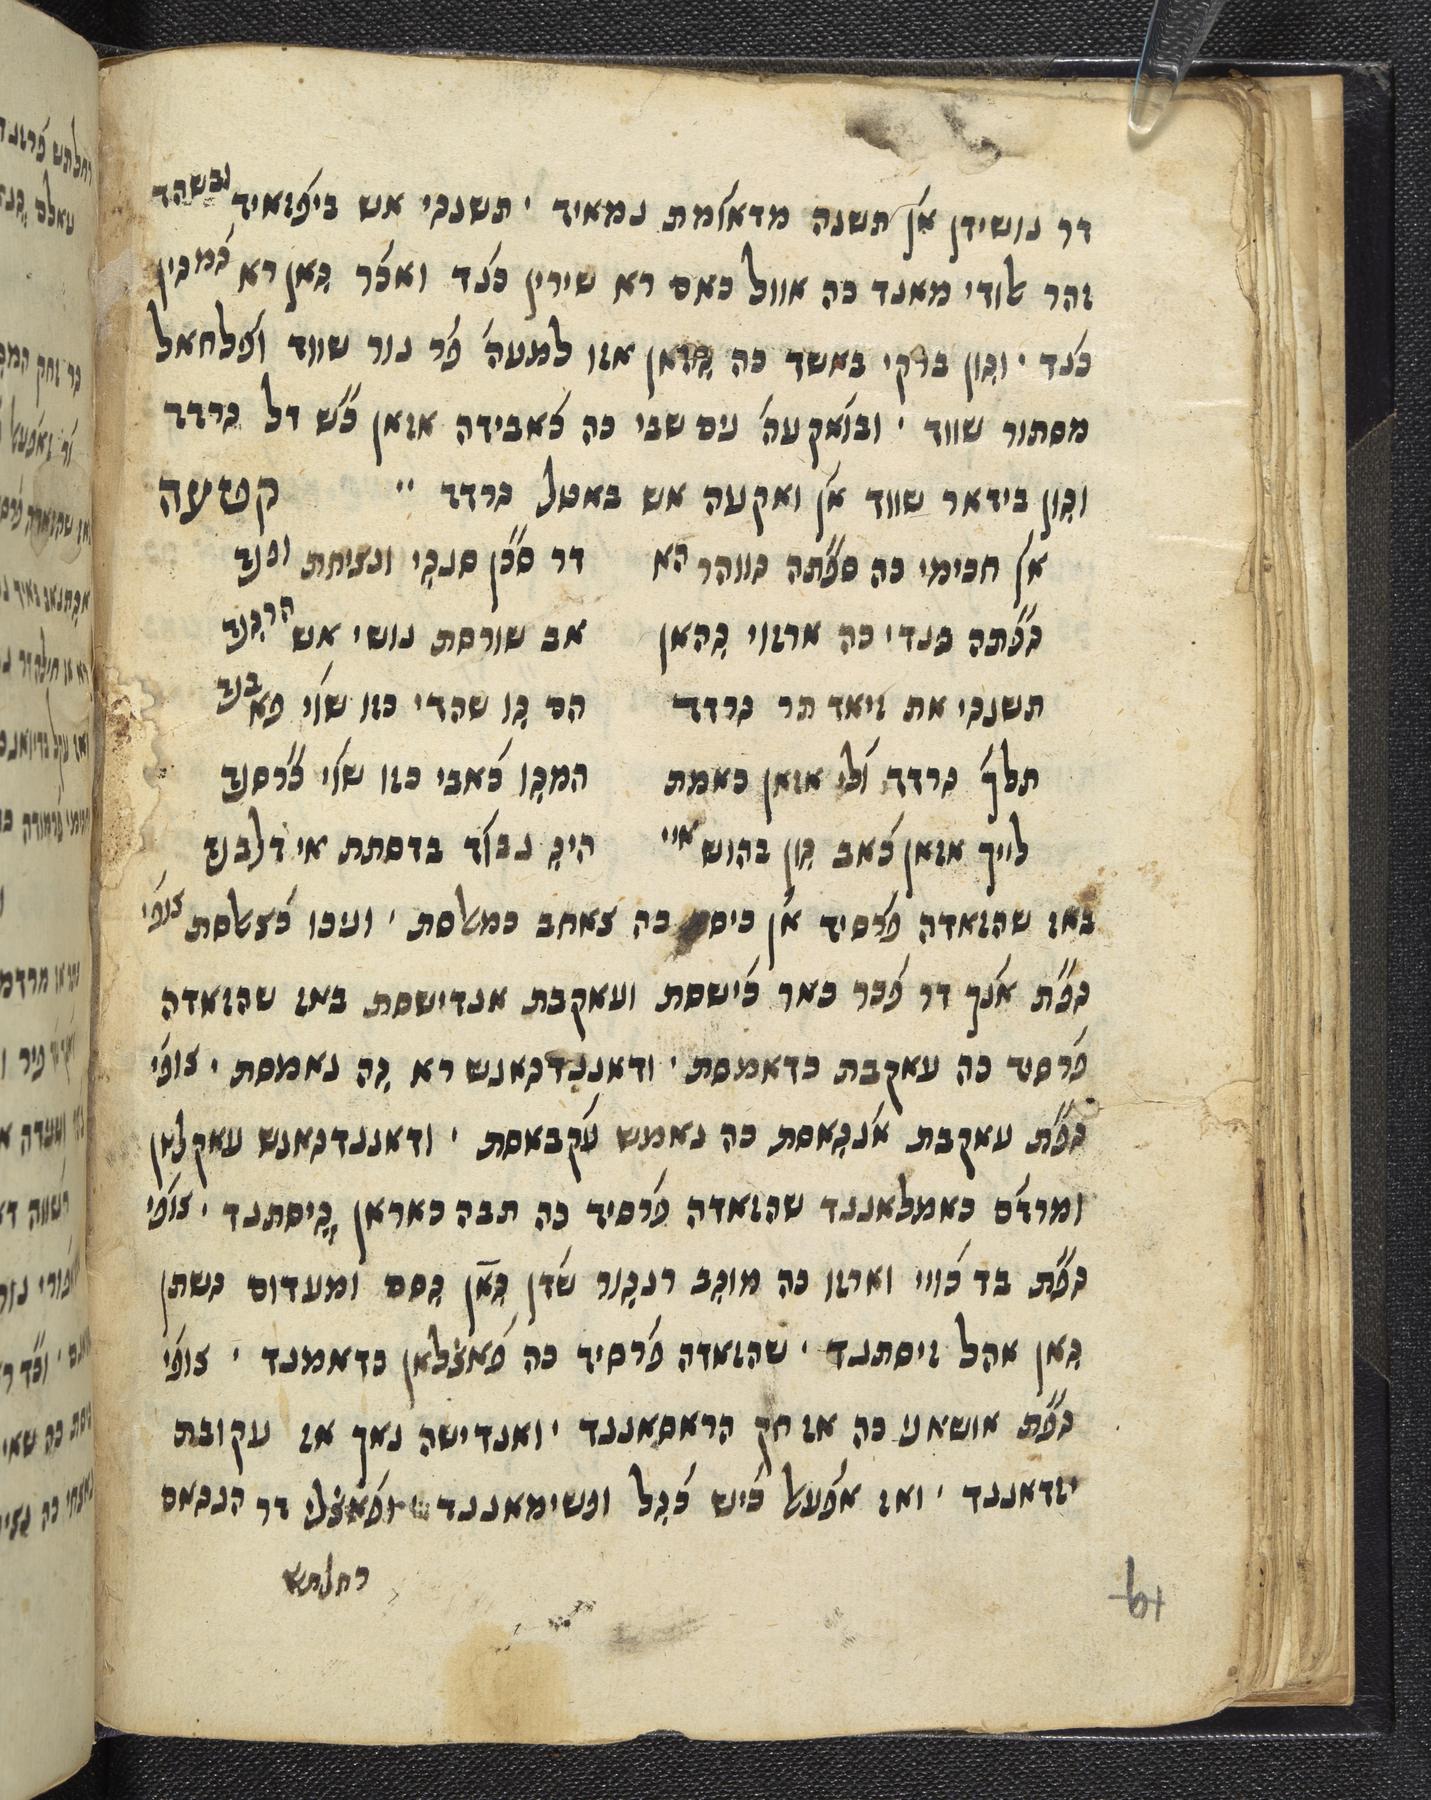 דר נושידן אן תשנה מדאומת נמאיד ׳ תשנגי אש ביפזאיד ובשהד
זהר אלודי מאנד כה אוול כאם רא שירין כ֗נד ואכ֗ר גאן רא גמגין
כ֗נד ׳ וגון ברקי באשד כה גהאן אזו למעה פ֗ר נור שווד ופ֗לחאל
מסתור שווד ׳ ובואקעה עם שבי כה כ֗אבידה אזאן כ֗ש דל גרדד
וגון בידאר שווד אן ואקעה אש באטל גרדד ״ קטעה
אן חכימי כה סופ֗תה גווהר הא דר סכ֗ן סנגי ונציחת ופנד
גופ֗תה פנדי כה ארזוי גהאן אב שורסת נושי אש הרגנד
תשנגי את זיאד תר גרדד הם גו שהדי כזו שוי פאבנד
תלך֗ גרדד ולי אזאן כאמת המגו כ֗אבי כזו שוי כ֗רסנד
לייך אזאן כ֗אב גון בהוש איי היג נבוד בדסתת אי דלבנד
באז שהזאדה פ֗רסיד אן כיסת כה צאחב כמאלסת ׳ ועיכו כ֗צאלסת צופ֗י
גופ֗ת אנך דר פ֗כר כאר כ֗ישסת ועאקבת אנדישסת באז שהזאדה
פ֗רסיד כה עאקבת כדאמסת ׳ ודאננדגאנש רא גה נאמסת ׳ צופ֗י
גופ֗ת עאקבת אנגאסת כה נאמש עקבאסת ׳ ודאננדגאנש עאקלאן
ומרדם כאמלאננד שהזאדה פ֗רסיד כה תבה כאראן גיסתנד ׳ צופ֗י
גופ֗ת בד כ֗ויי וארזו כה מוגב רנגור שדן גאן גסם ומעדום גשתן
גאן אהל זיסתנד ׳ שהזאדה פ֗רסיד כה פ֗אצ֗לאן כדאמנד ׳ צופ֗י
גופ֗ת אושאע כה אז חק הראסאננד ׳ ואנדישה נאך אז עקובת
יזדאננד ׳ ואז אפ֗עאל כ֗יש כ֗גל ופשימאננד ופ֗אצ֗לי דר הנגאם
רחלתש